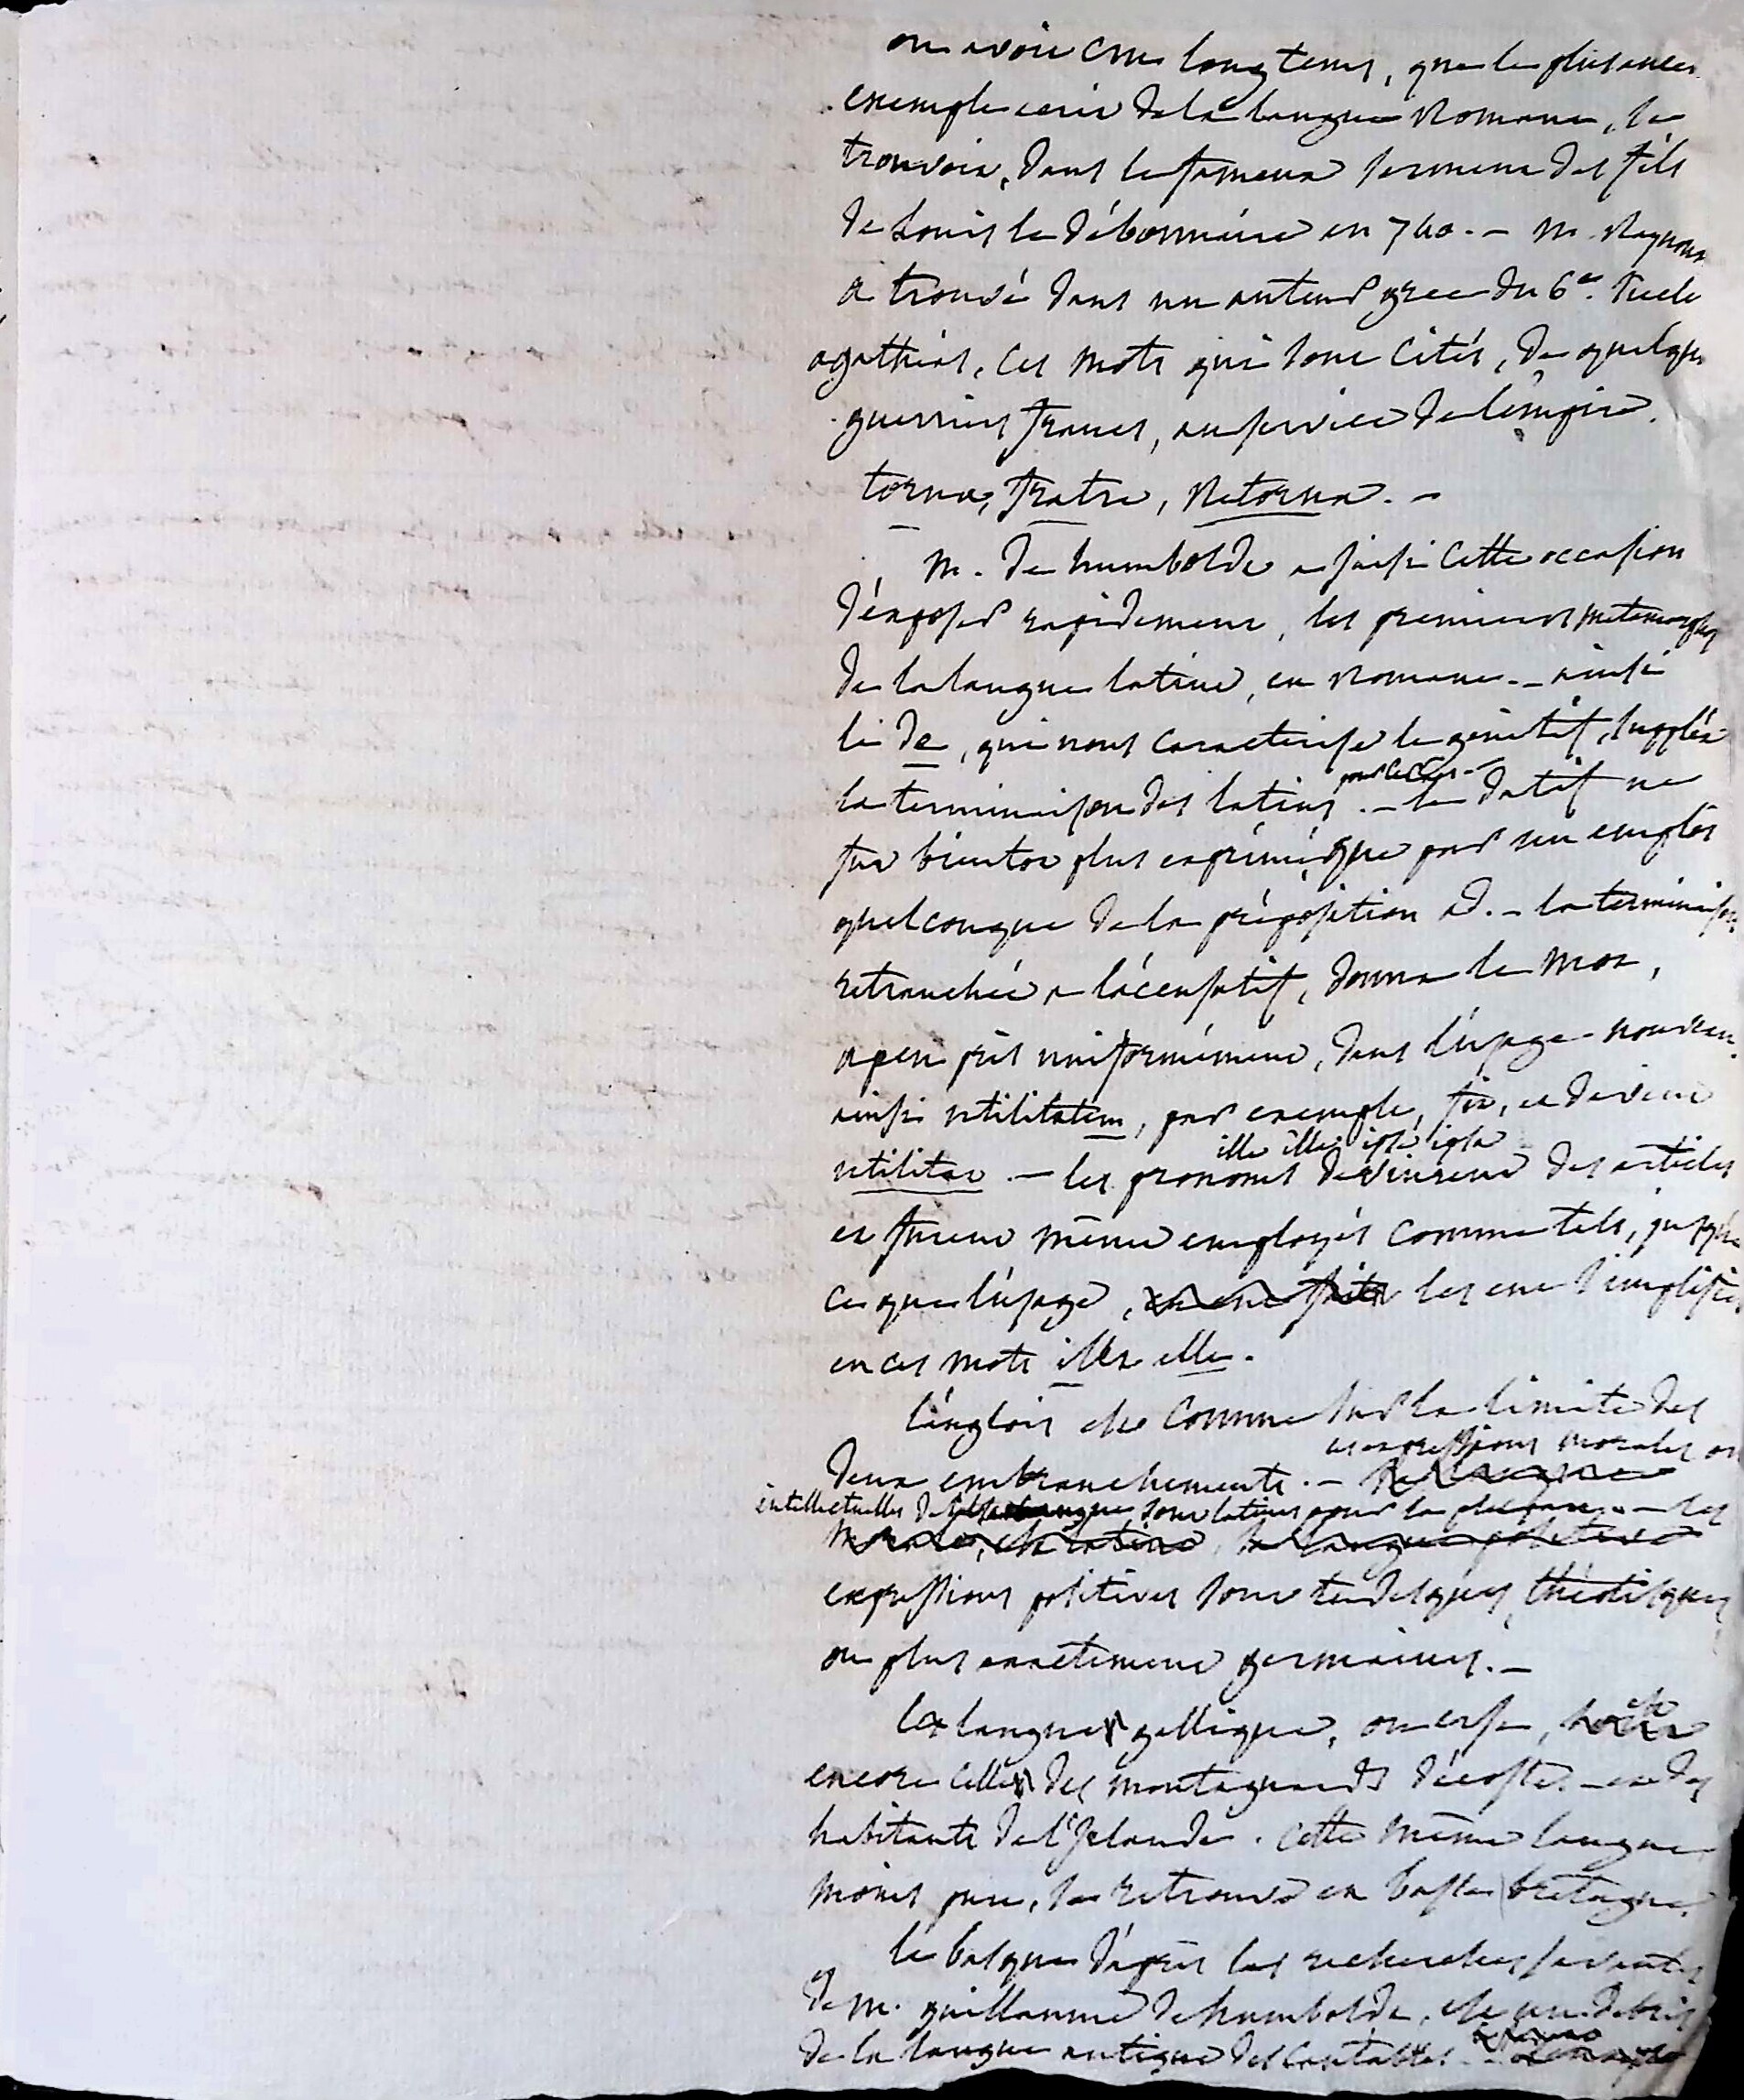 on avoit cru longtems, que le plus ancien
exemple écrit de la langue Romane, se
trouvoit, dans le fameux serment des fils
de Louis le débonnaire en 740. — M. Raynou
a trouvé dans un auteur grec du 6e. siecle
agathias, ces mots qui sont cités, de quelques
guerriers francs, au service de l'empire.
torna, fratre, Retorna. —
M. de humboldt a saisi cette occasion
d'exposer rapidement, les premieres metamorphoses
de la langue latine, en Romane. — ainsi
le de, qui nous caracterise le genitif, suppléa
la terminaison des latins — le datif ne
fut bientot plus exprimé, que par un emploi
quelconque de la préposition ad. — la terminaison
retranchée a l'accusatif, donna le mot,
a peu près uniformément, dans l'usage nouveau
ainsi utilitatem, par exemple, fit, et devint
ille illa ipse ipsa
utilitat. — les pronoms devinrent des articles
et furent même employés comme tels, jusqu'a
ce que l'usage, les eut simplifiés
en ces mots elle.
l'anglois est comme sur la limite des
deux embranchements. — les expressions morales ou
intellectuelles sont latines pour la plupart. — les
expressions positives sont tudesques, théotisques
ou plus exactement germaines. —
la langue gallique, ou erse, est
encore celle des montagnards d'écosse — et des
habitants de l'Irlande. cette même langue
moins pure, se retrouve en basse bretagne.
le basque d'après les recherches savantes
de M. guillaume de humboldt, est un debris
de la langue antique des Cantabres